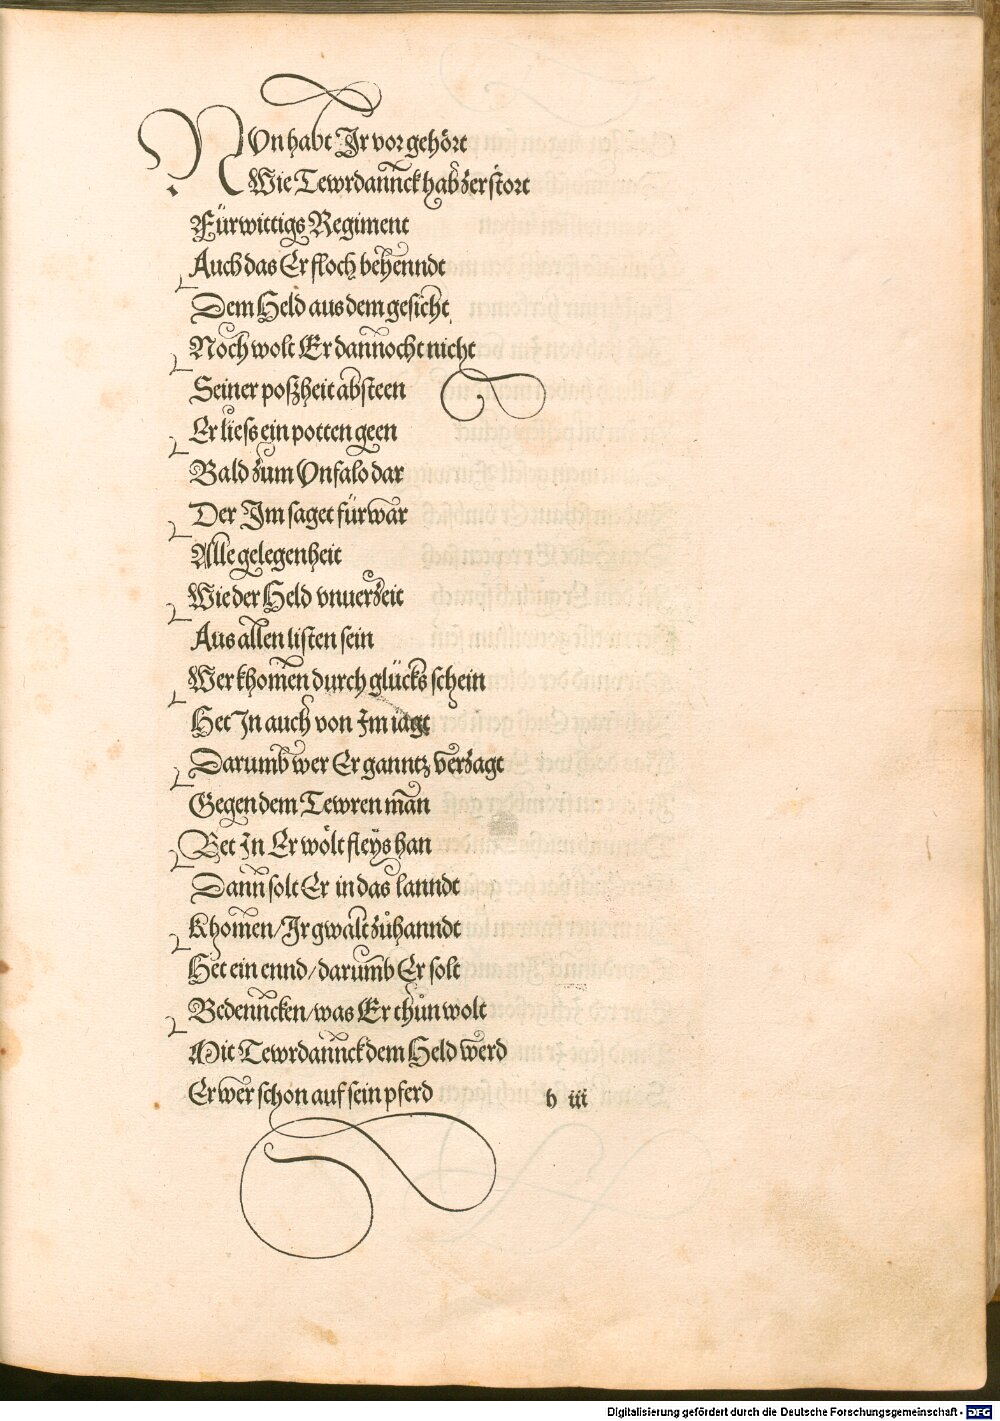 NUn habt Ir vor gehört
Wie Tewrdannck hab zerstort
Fürwittigs Regiment
Auch das Er floch behenndt
Dem Held aus dem gesicht
Noch wolt Er dannocht nicht
Seiner poszheit absteen
Er liess ein potten geen
Bald zum Unfalo dar
Der Im saget fürwar
Alle gelegenheit
Wie der Held vnuerzeit
Aus allen listen sein
Wer khomen durch glücks schein
Het In auch von Im iagt
Darumb wer Er ganntz verzagt
Gegen dem Tewren man
Bet In Er wölt fleys han
Dann solt Er in das lanndt
Khomen/ Ir gwalt zůhanndt
Het ein ennd/ darumb Er solt
Bedenncken/ was Er thůn wolt
Mit Tewrdannck dem Held werd
Er wer schon auf sein pferd
h iii
Digitalisierung gefördert durch die Deutsche Forschungsgemeinschaft - DFG